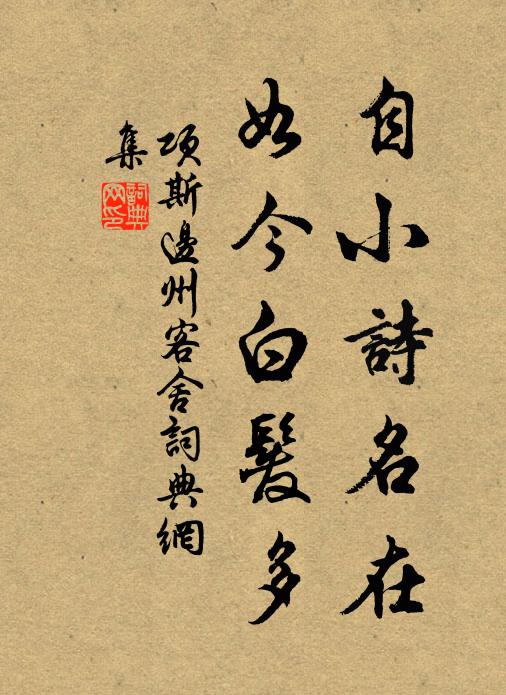 自小詩名在
如今白髮多
項斯邊州客舍詞典網
集
詞典網印